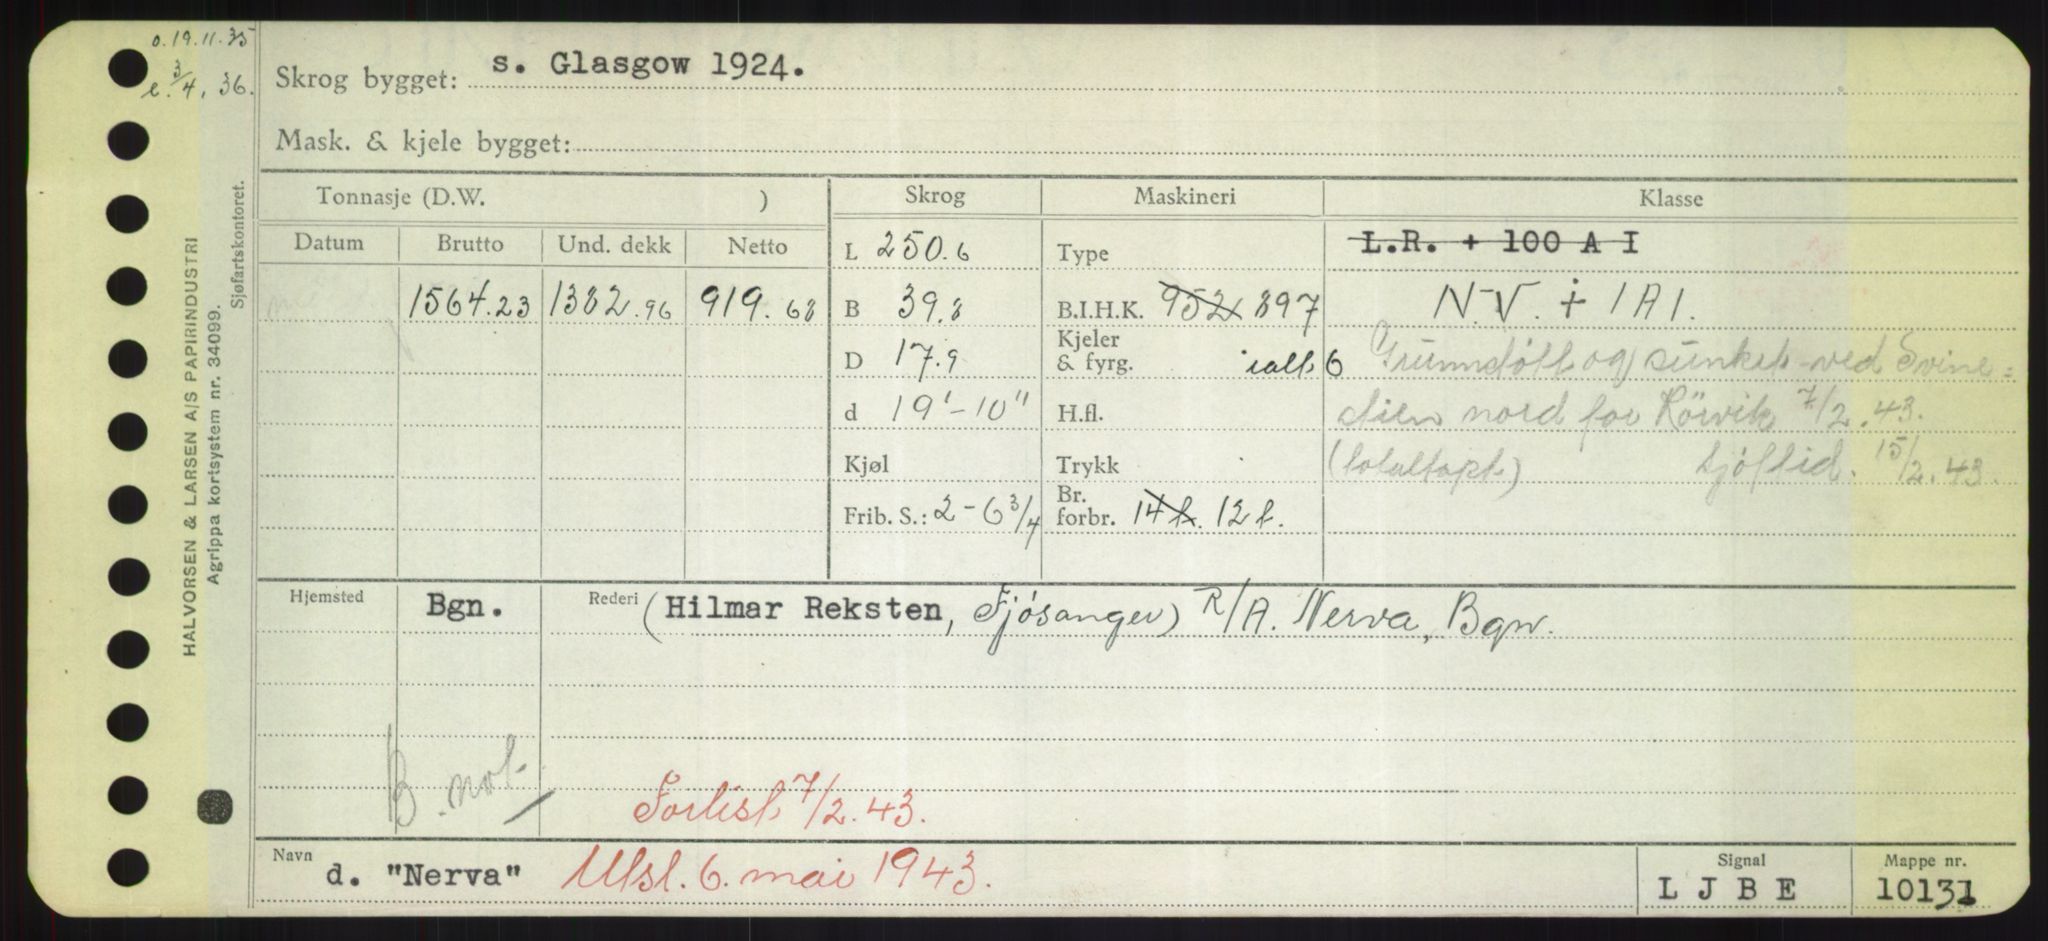 o. 19.11.35
e. 3/4. 36.
Skrog bygget: s. Glasgow 1924.
Mask. & kjele bygget:
HALVORSEN & LARSEN A/S PAPIRINDUSTRI
Agrippa kortsystem nr. 34099.
Sjøfartskontoret.
Tonnasje (D.W. ) Skrog Maskineri Klasse
Datum Brutto Und. dekk Netto L 250.6 Type L.R. + 100 A I
1564.23 1382.96 919.68 B 39.8 B.I.H.K. 952 897 N.V. + 1A1.
D 17.9 Kjeler & fyrg. ialt 6 Grunnstøtt og sunket ved Svine=
d 19'-10" H.fl. nord for Rörvik 7/2.43.
Kjøl Trykk (totaltapt.) Sjöftid. 15/2.43.
Frib. S.: 2-6 3/4 Br. forbr. 14 t. 12 t.
Hjemsted Bgn. Rederi (Hilmar Reksten, Fjösanger) R/A. Nerva, Bgn.
B. not.
Forlist 7/2.43.
Navn d. "Nerva" Utsl. 6. mai 1943.
Signal LJBE
Mappe nr. 10131